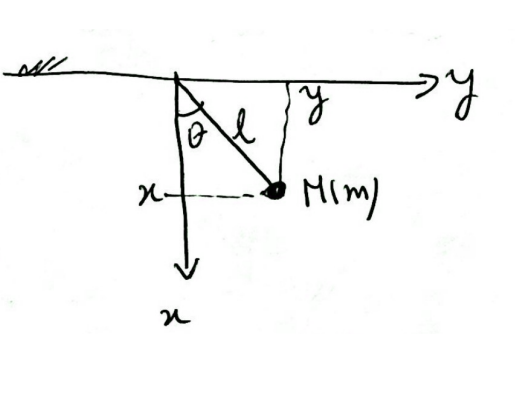 y
y
θ
l
x
M(m)
x